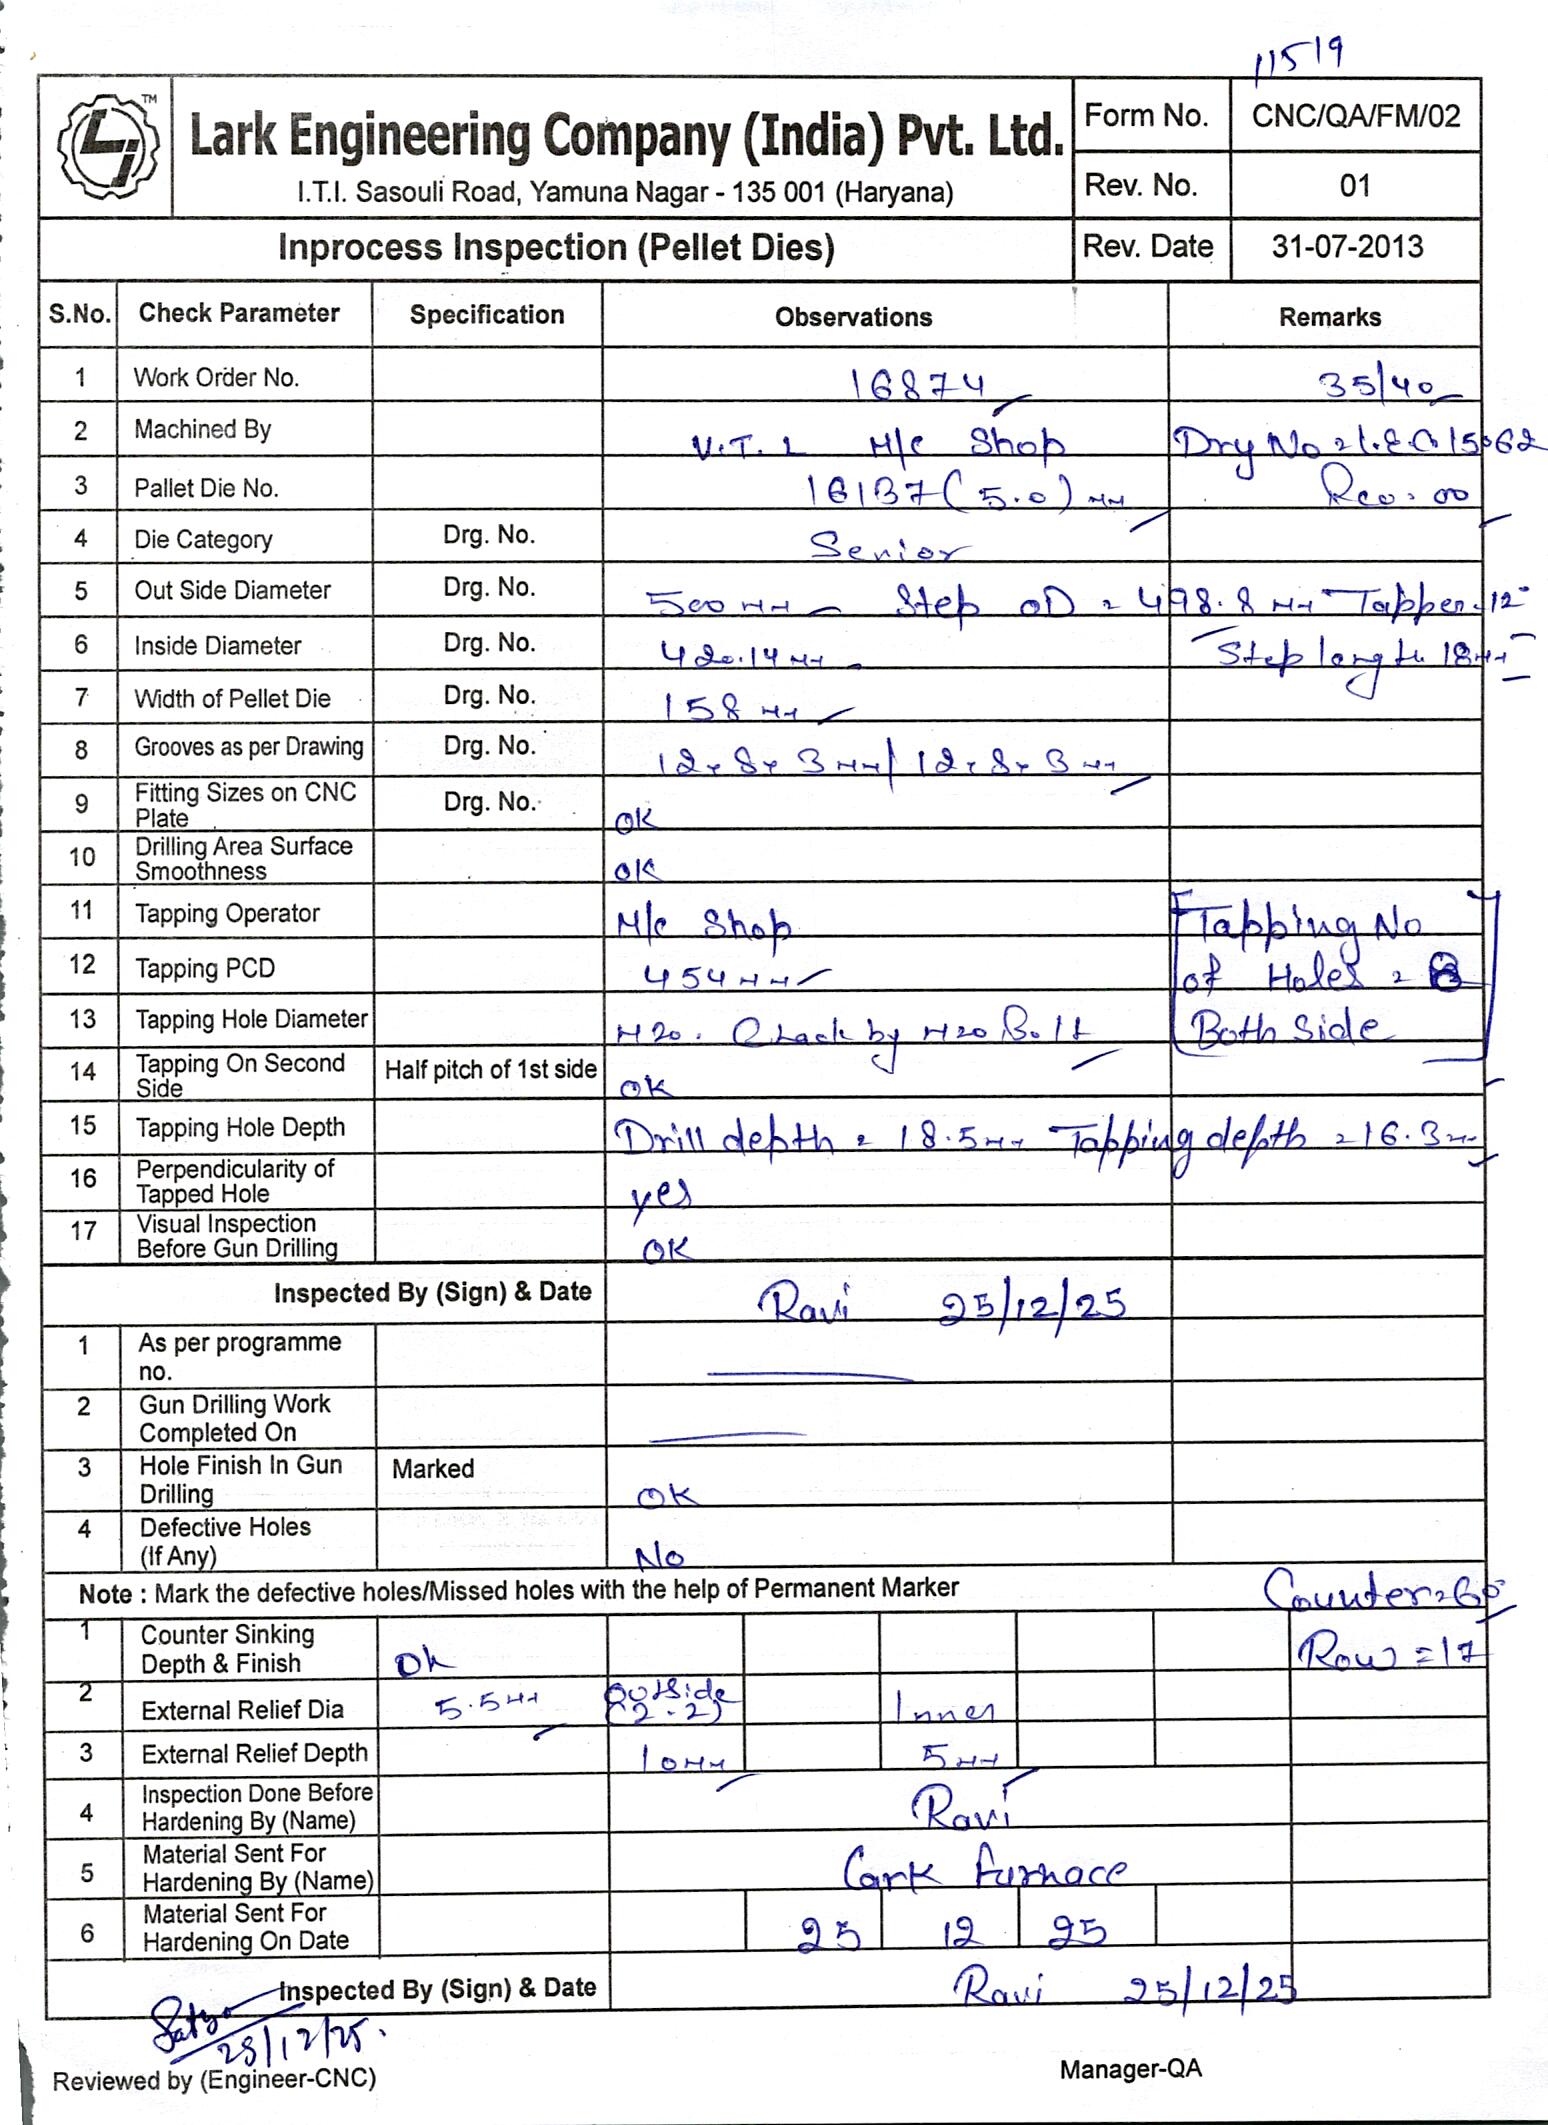 11519
TM
Lark Engineering Company (India) Pvt. Ltd.
I.T.I. Sasouli Road, Yamuna Nagar - 135 001 (Haryana)
Form No. CNC/QA/FM/02
Rev. No. 01
Inprocess Inspection (Pellet Dies) Rev. Date 31-07-2013
S.No. Check Parameter Specification Observations Remarks
1 Work Order No. 16874 35/40
2 Machined By V.T.L M/c Shop
3 Pallet Die No. 16137 (5.0) mm
4 Die Category Drg. No. Senior
5 Out Side Diameter Drg. No. 500 mm Step OD = 498.8 mm Tapper = 12°
6 Inside Diameter Drg. No. 420.14 mm Step length 18mm
7 Width of Pellet Die Drg. No. 158 mm
8 Grooves as per Drawing Drg. No. 12 x 8 x 3 mm / 12 x 8 x 3 mm
9 Fitting Sizes on CNC Plate Drg. No. OK
10 Drilling Area Surface Smoothness OK
11 Tapping Operator M/c Shop Tapping No
12 Tapping PCD 454 mm of Holes = 8
13 Tapping Hole Diameter M20. Check by M20 Bolt Both Side
14 Tapping On Second Side Half pitch of 1st side OK
15 Tapping Hole Depth Drill depth = 18.5mm Tapping depth = 16.3mm
16 Perpendicularity of Tapped Hole yes
17 Visual Inspection Before Gun Drilling OK
Inspected By (Sign) & Date Ravi 25/12/25
1 As per programme no.
2 Gun Drilling Work Completed On
3 Hole Finish In Gun Drilling Marked OK
4 Defective Holes (If Any) No
Note : Mark the defective holes/Missed holes with the help of Permanent Marker Counter = 60°
1 Counter Sinking Depth & Finish Ok Row = 17
2 External Relief Dia 5.5mm Outside (2-2) Inner
3 External Relief Depth 10mm 5mm
4 Inspection Done Before Hardening By (Name) Ravi
5 Material Sent For Hardening By (Name) Lark furnace
6 Material Sent For Hardening On Date 25 12 25
Inspected By (Sign) & Date Ravi 25/12/25
Reviewed by (Engineer-CNC) Manager-QA